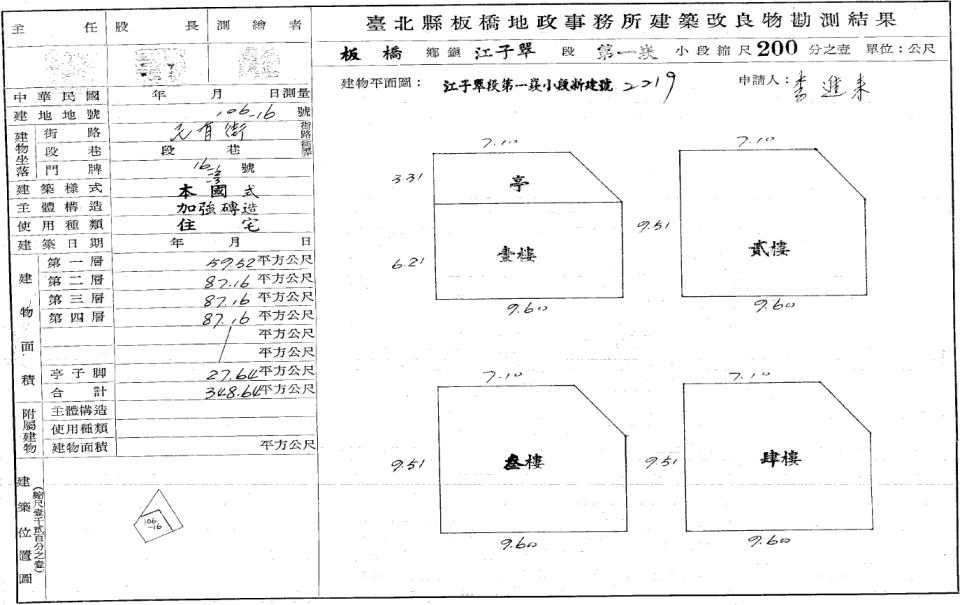 臺北縣板橋地政事務所建築改良物勘測結果
板橋 鄉鎮 江子翠 段 第一崁 小段縮尺 200 分之壹 單位：公尺
建物平面圖： 江子翠段第一崁小段新建號 2219 申請人：李進來
主任 股長 測繪者
中華民國 年 月 日測量
建地地號 106-16 號
建物坐落 街路 民有街 街路
段巷 段 巷
門牌 16 號
建築樣式 本國式
主體構造 加強磚造
使用種類 住宅
建築日期 年 月 日
建物面積
第一層 59.52 平方公尺
第二層 87.16 平方公尺
第三層 87.16 平方公尺
第四層 87.16 平方公尺
平方公尺
平方公尺
亭子脚 27.64 平方公尺
合計 348.64 平方公尺
附屬建物
主體構造
使用種類
建物面積 平方公尺
建築位置圖
（縮尺壹千貳百分之壹）
106
-16
7.10
3.31
亭
6.21
壹樓
9.60
7.10
9.51
貳樓
9.60
7.10
9.51
叁樓
9.60
7.10
9.51
肆樓
9.60